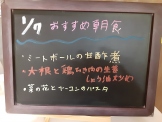 1/7 おすすめ朝食
・ミートボールの甘酢煮
・大根と鶏ひき肉の生姜
・菜の花とベーコンのパスタ